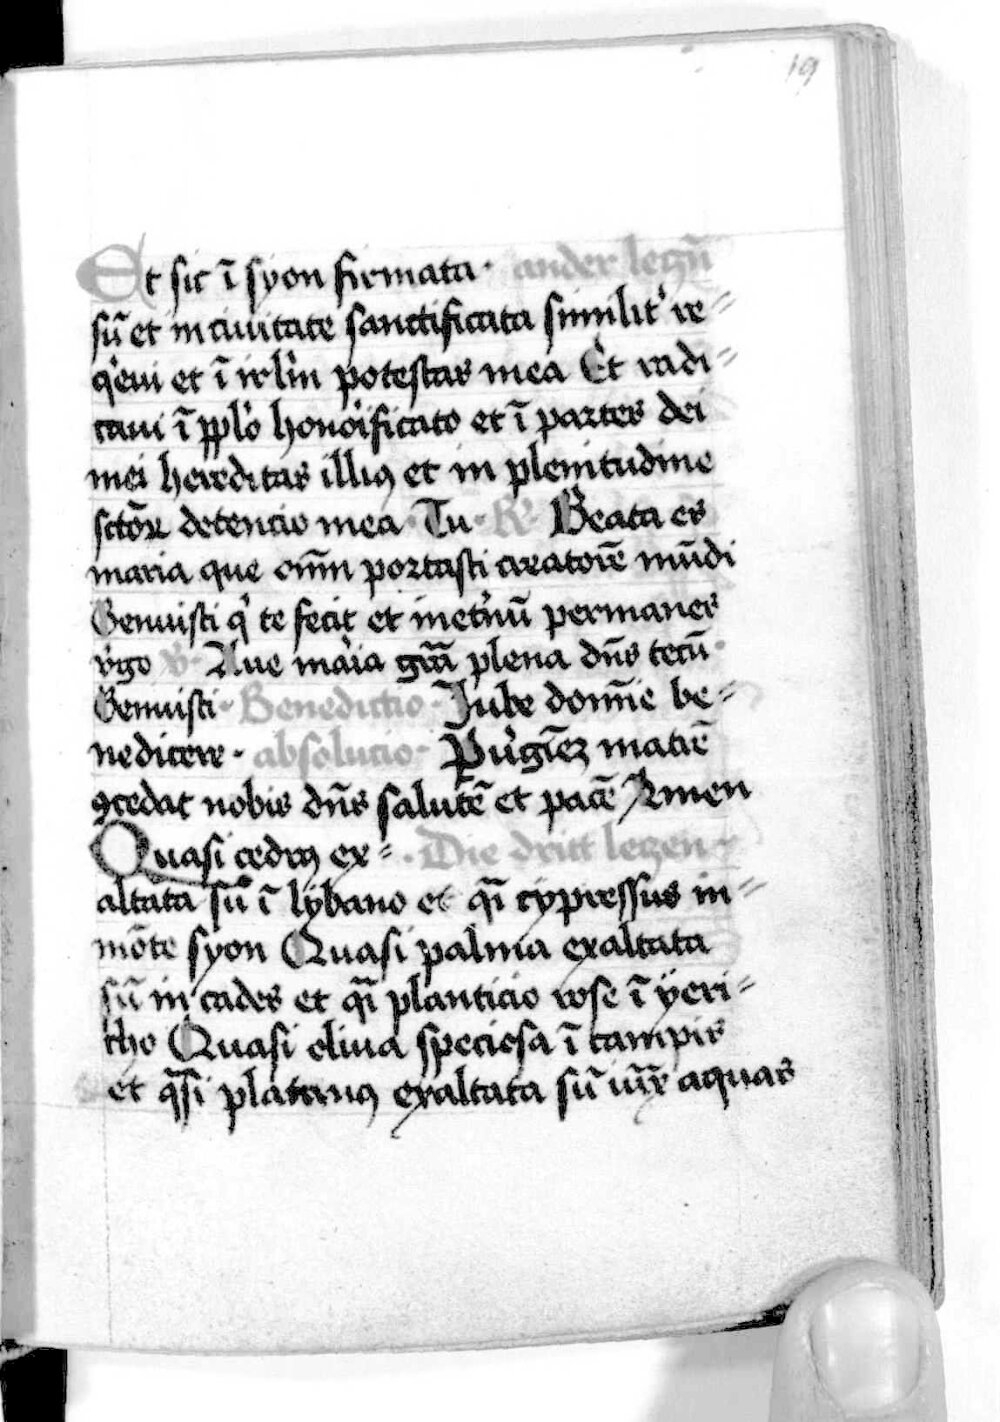 19
Et sic ī syon firmata · ander legn̄
sū et in ciuitate sanctificata similit' re⸗
q'eui et ī irl'm potestas mea Et radi⸗
caui ī ppl'o hono'ificato et ī partes dei
mei hereditas illiꝰ et in plenitudine
sctōꝝ detencio mea · Tu · R' · Beata es
maria que om̄ portasti creatorē mūdi
Genuisti q' te fecit et inet'nū permanes
v'go v' · Aue ma'ia gr̄a plena dn̄s tecū ·
Genuisti · Benedictio · Jube domn̄e be⸗
nedicere · absolucio · P v'gīeꝫ matrē
ꝯcedat nobis dn̄s salutē et pacē Amen
Quasi cedrꝰ ex⸗ · Die dritt leczen ·
altata sū ī lybano et q̄i cypressus in⸗
mōte syon Quasi palma exaltata
sū in cades et q̄i planticio rose ī yeri⸗
cho Quasi oliua speciosa ī campis
et q̄si platanꝰ exaltata sū iux̄ aquas